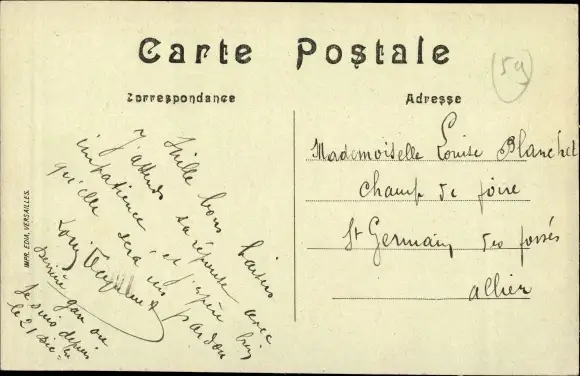 Carte Postale
(59)
Correspondance
Adresse
Mille bons baisers
J'attends sa réponse avec
impatience et j'espère bien
qu'elle sera un pardon
Louis
Dernière gare ou
Je suis depuis
le 21 Dec
Mademoiselle Louise Blanchet
Champ de foire
St Germain des fossés
Allier
IMP. EDIA, VERSAILLES.